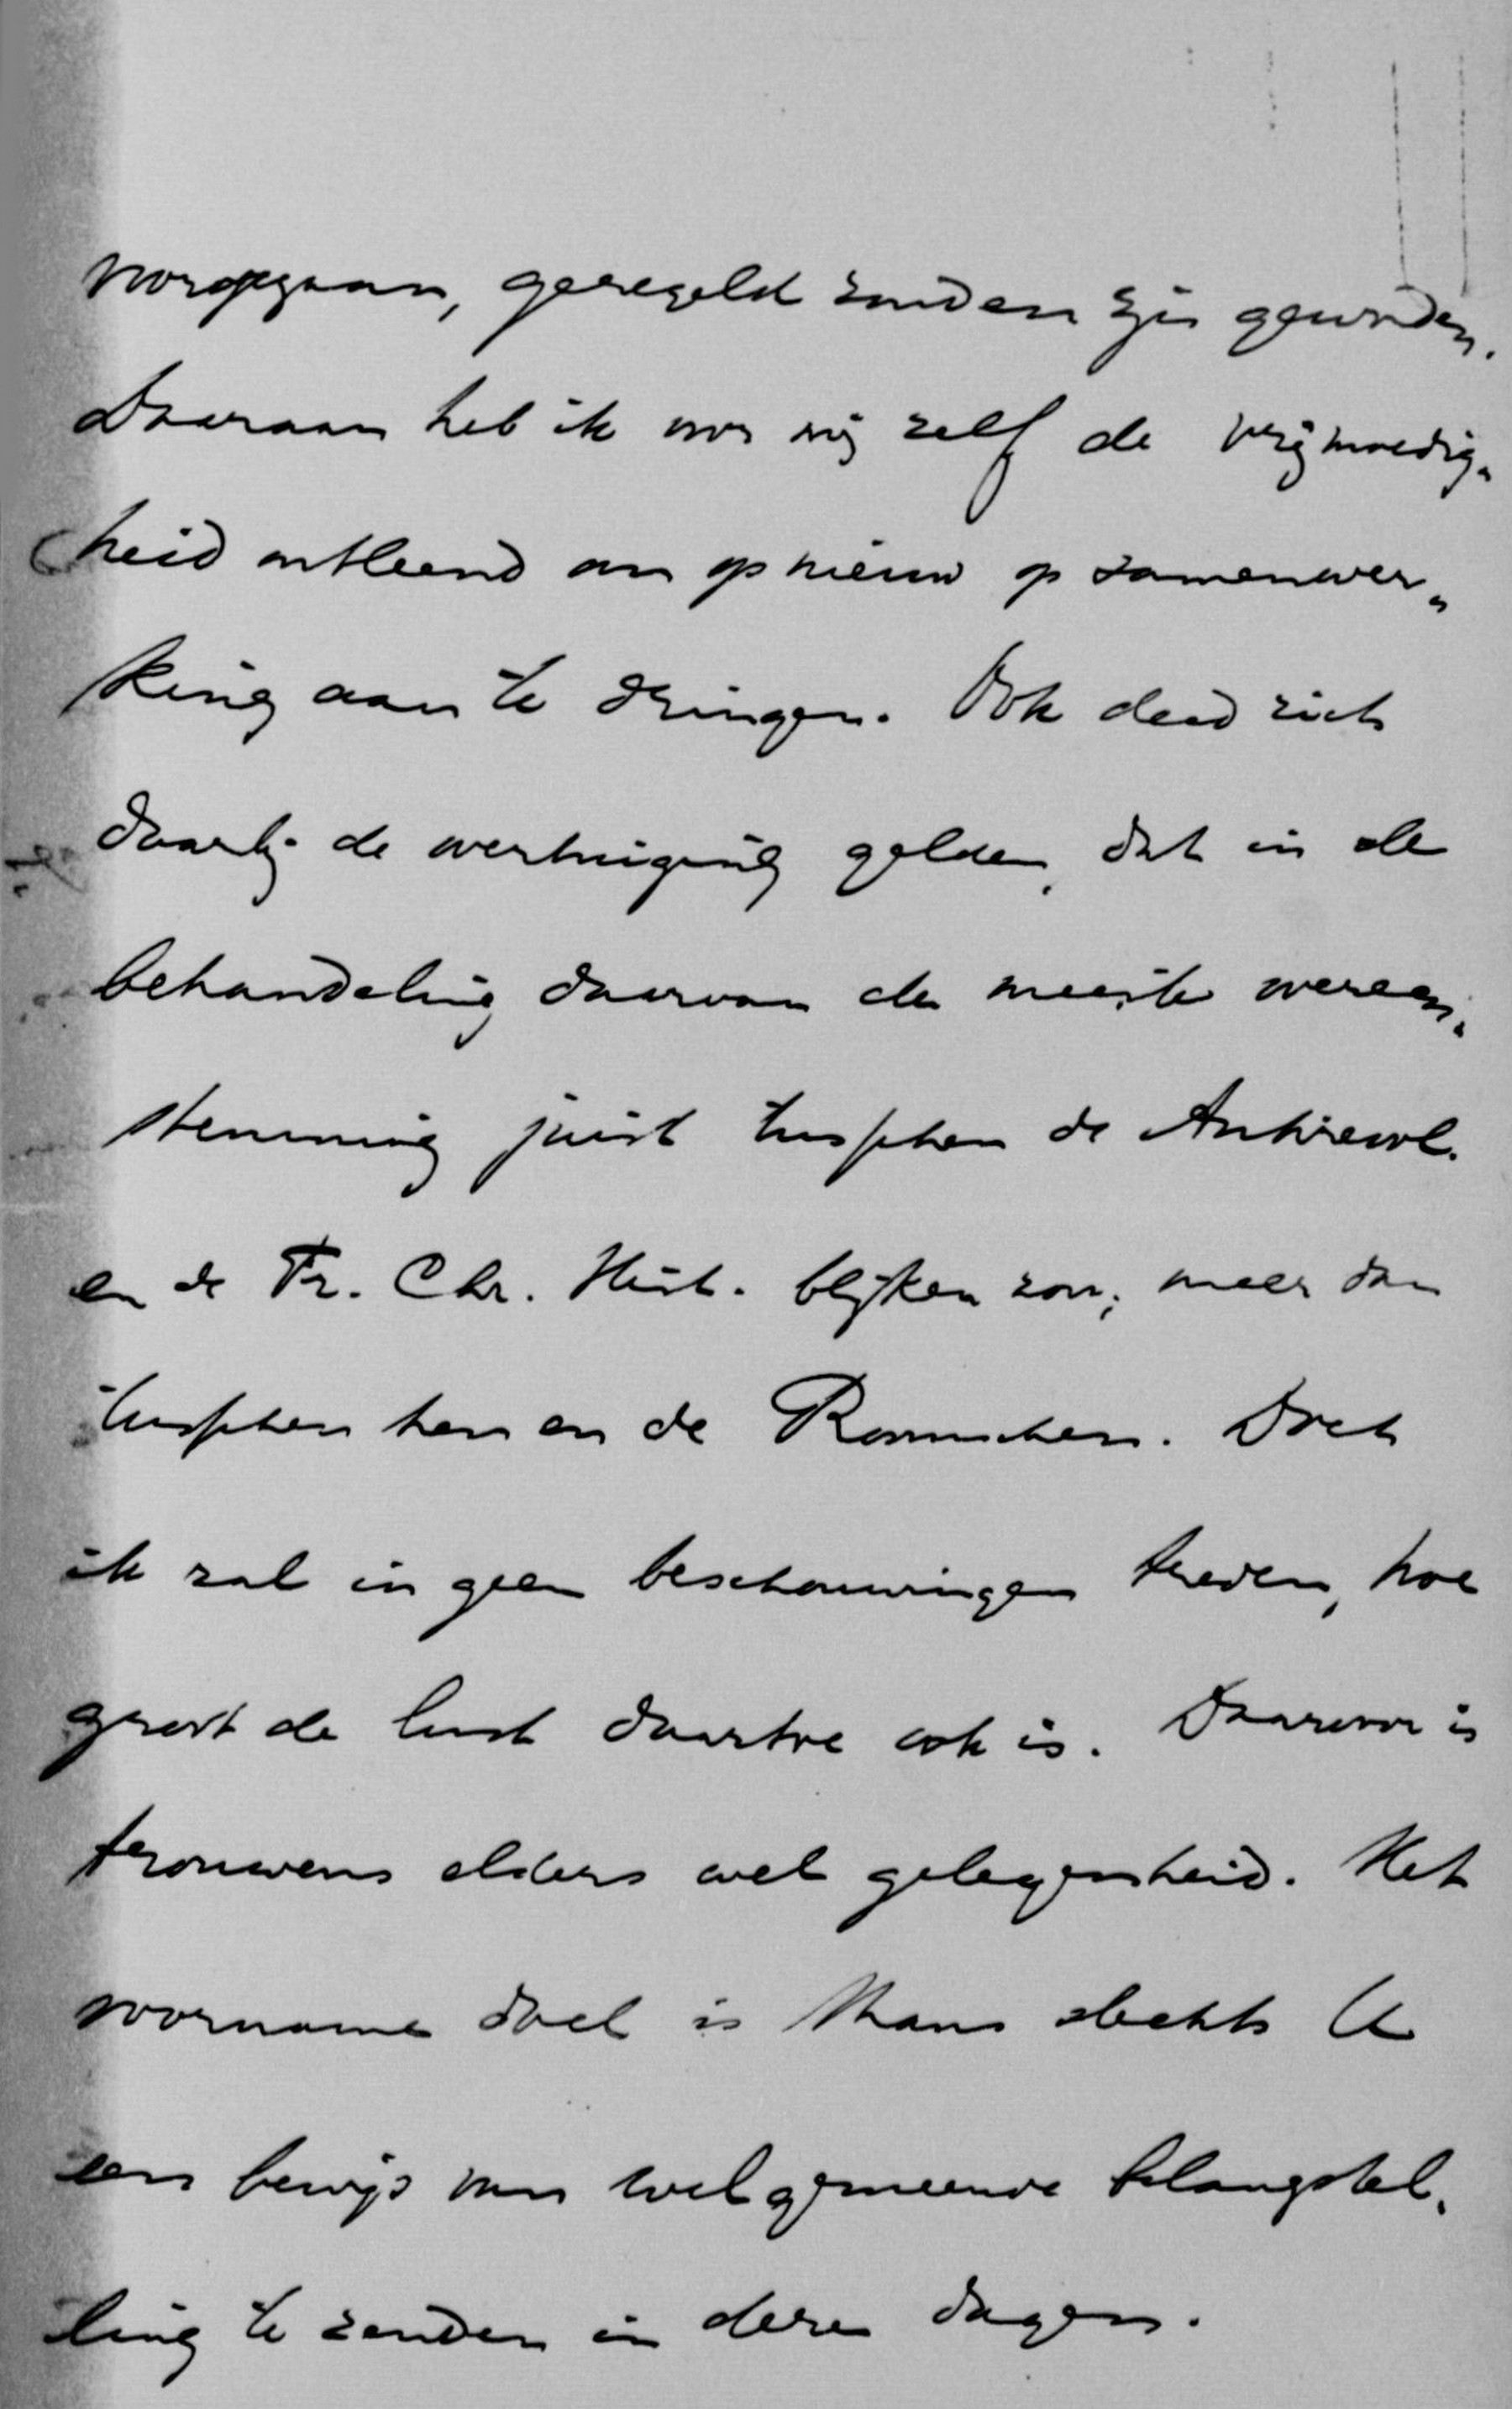 voorgegaan, geregeld zouden zijn geworden.
Daaraan heb ik voor mij zelf de vrijmoedig-
heid ontleend om op nieuw op zamenwer-
king aan te dringen. Ook deed zich
daarbij de overtuiging gelden, dat in de
behandeling daarvan de meeste overeen-
stemming juist tusschen de Antirevol.
en de Fr. Chr. Hist. blijken zou, meer dan
tusschen hen en de Roomschen. Doch
ik zal in geen beschouwingen treden, hoe
groot de lust daartoe ook is. Daarvoor is
trouwens elders wel gelegenheid. Het
voorname doel is thans slechts U
een bewijs van welgemeende belangstel-
ling te zenden in deze dagen.